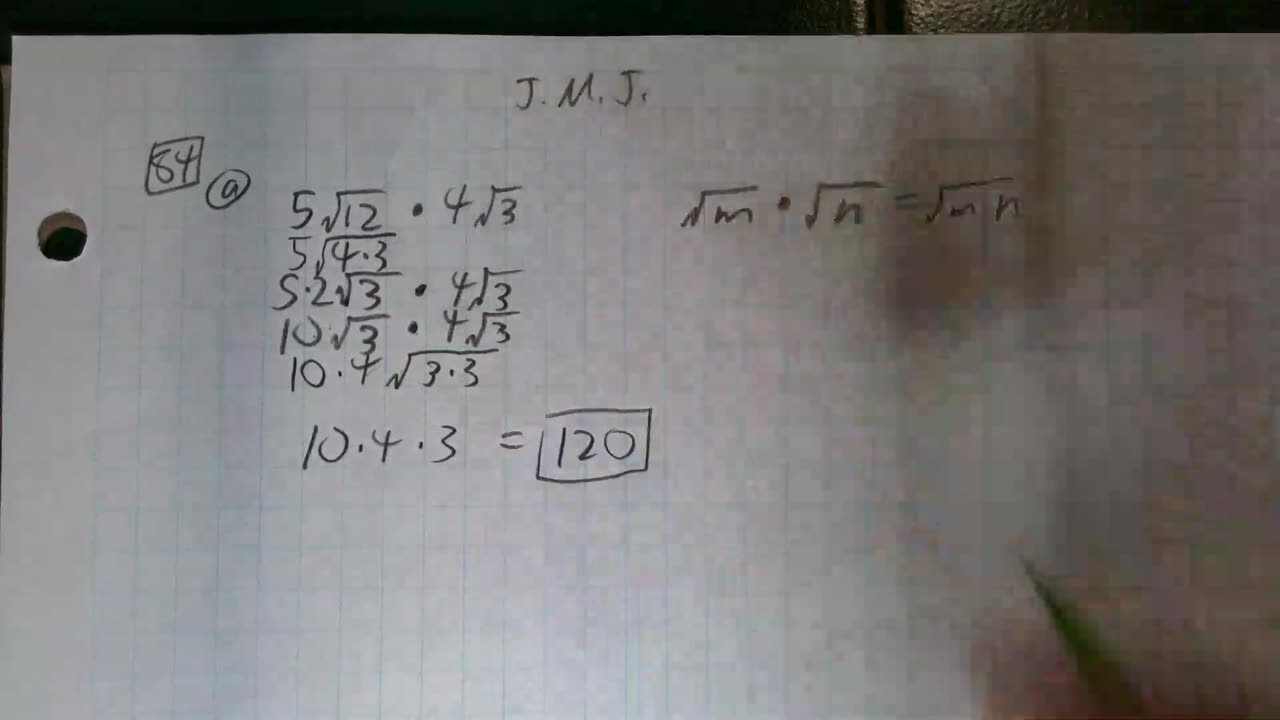 J.M.J.
84 a 5√12 · 4√3 √m · √n = √mn
5√4·3
5·2√3 · 4√3
10√3 · 4√3
10·4√3·3
10·4·3 = 120